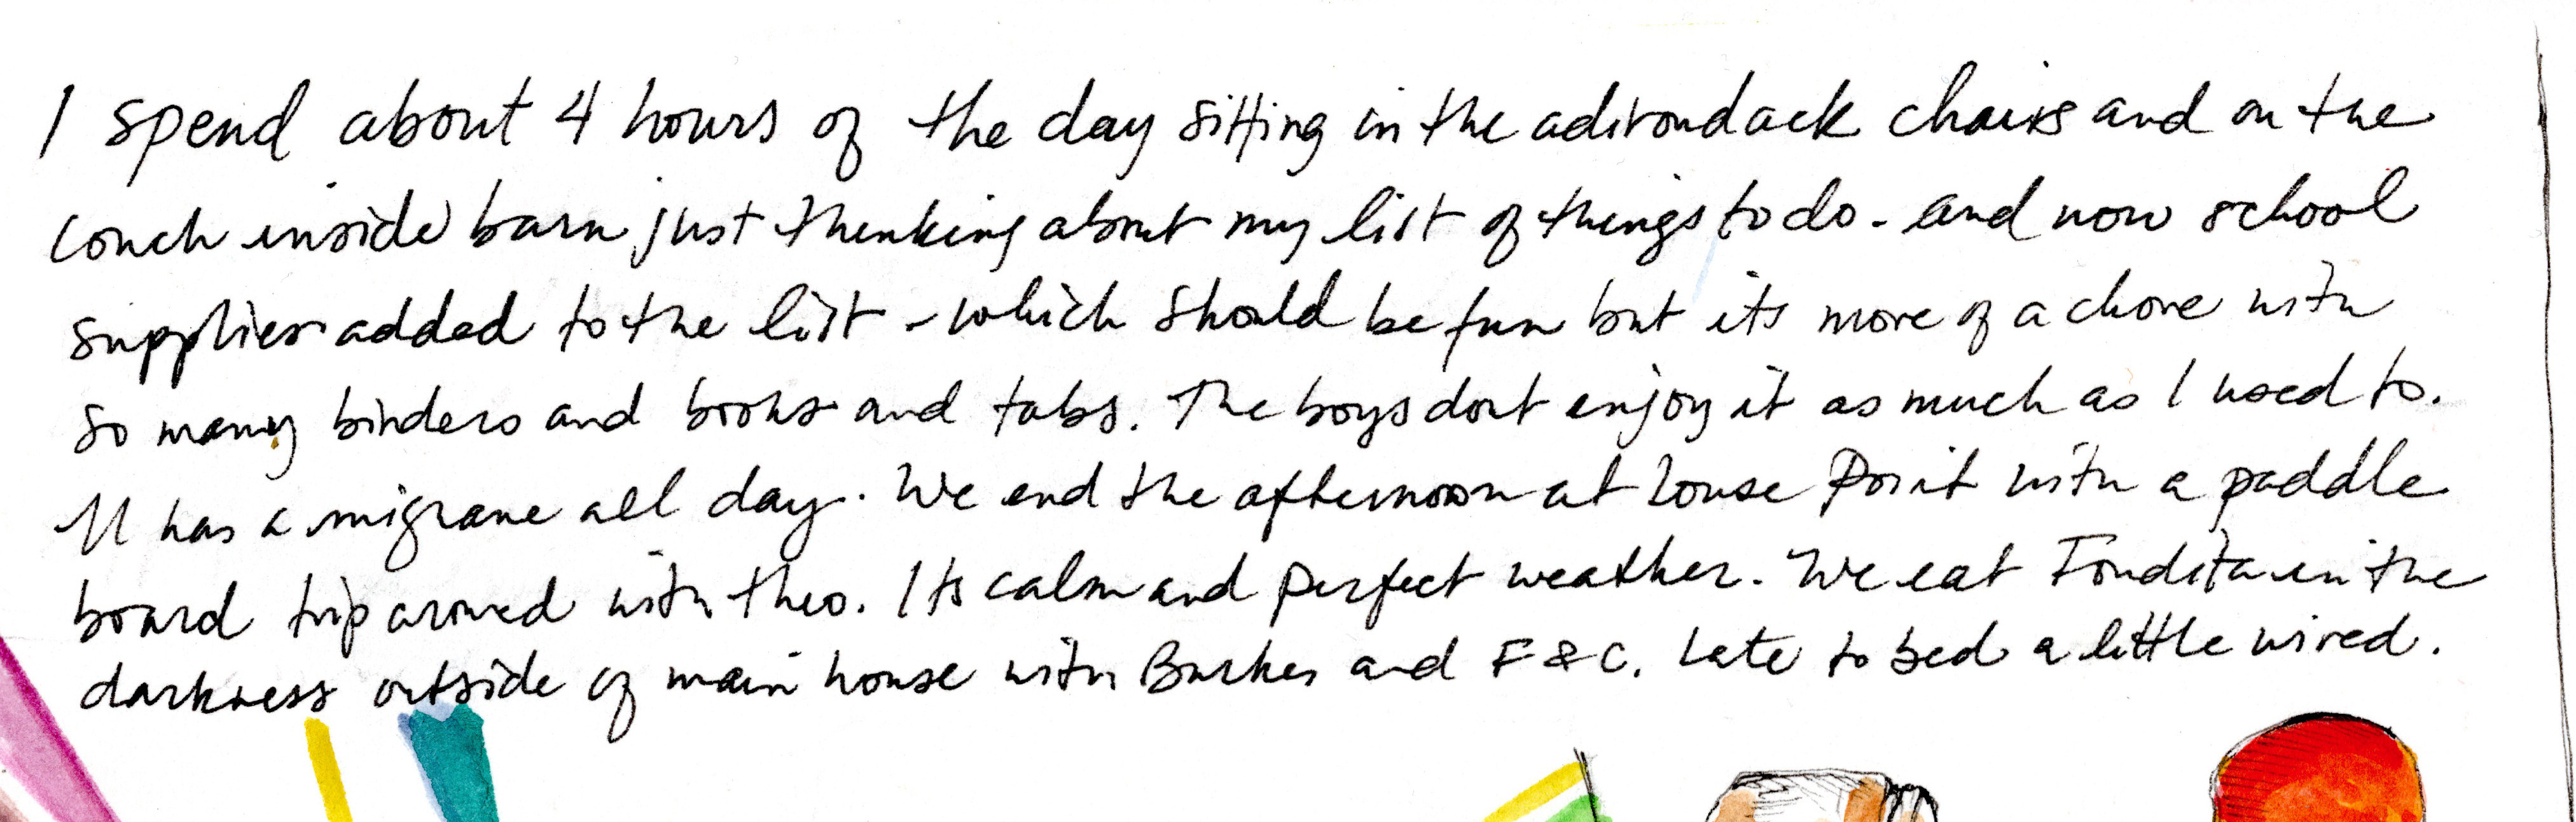 I spend about 4 hours of the day sitting in the adirondack chairs and on the
couch inside barn just thinking about my list of things to do - and now school
supplies added to the list - which should be fun but its more of a chore with
so many binders and books and tabs. The boys dont enjoy it as much as I used to.
M has a migrane all day. We end the afternoon at Louse Point with a paddle
board trip around with theo. Its calm and perfect weather. We eat Fondita in the
darkness outside of main house with Burkes and F & C. Late to bed a little wired.